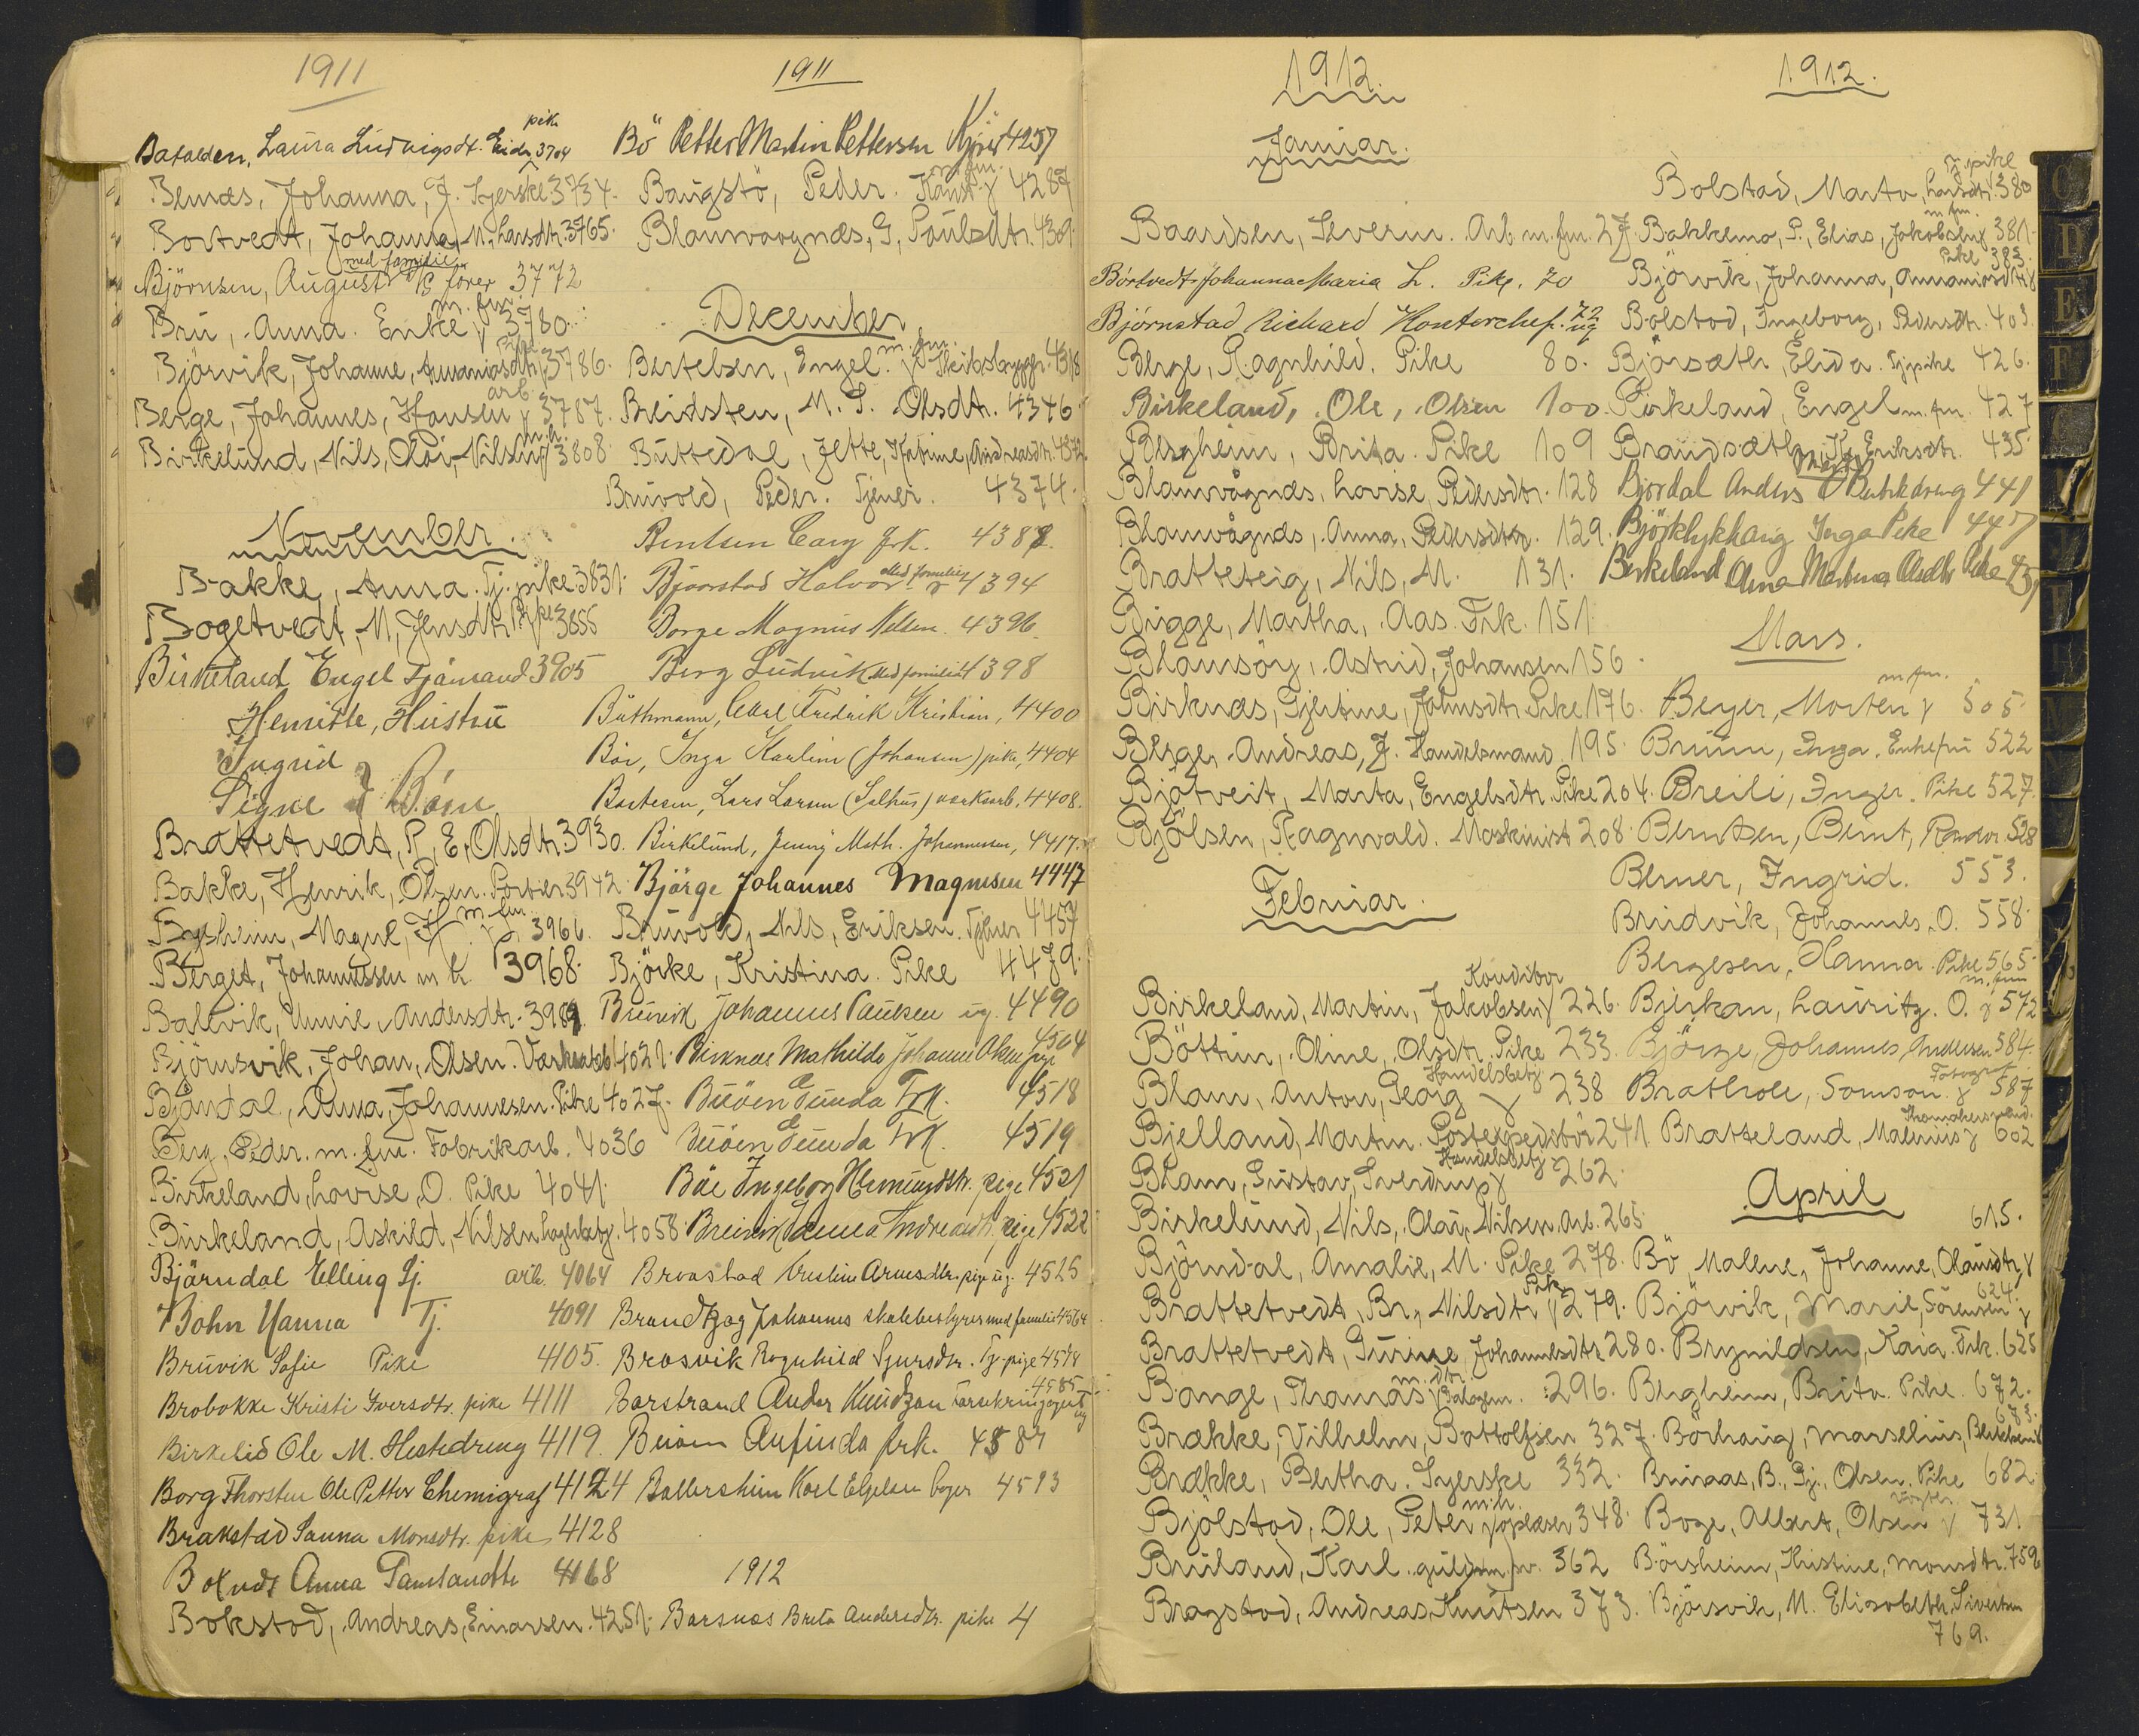 1911
Bataldén, Laura Ludvigsdt. Eide pike 3704
Johanna, J. Syerske 3734.
Bortvedt, Johanne, M. Larsdtr. 3765.
Björnsen, August med familie 3772
Bru, Anna. Enke m. fm. 3780.
Björvik, Johanne, Ananiasdtr. 3786.
Berge, Johannes, Hansen arb. 3787.
Birkelund, Nils, Olai, Nilsen m.h. 3808
November.
Bakke, Anna. Tj. pike 3831.
Bogetvedt, M, Jensdtr. Pike 3855
Birkeland Engel Tjänand 3905
Henritte, Hustru
Ingrid
Signe Börn
Brattetvedt, P, E, Olsdtr. 3930.
Bakke, Henrik, Olsen. Portier 3942.
Magne, H. m. fm. 3966.
Berget, Johannessen m h. 3968.
Ballvik, Andersdtr. 3989.
Björnsvik, Johan, Olsen. 4021.
Bjåndal, Anna, Johannesen. Pike 4027.
Berg, Peder. m. fm. Fabrikarb. 4036
Birkeland, Lovise, O. Pike 4041.
Birkeland, Askild, Nilsen 4058.
Bjärndal Elling Tj. arb. 4064
Bohn Hanna Tj. 4091
Bruvik Sofie Pike 4105.
Brobakke Kristi Iversdtr. pike 4111
Birkelid Ole M. Hestedreng 4119.
Borg Thorsten Ole Petter Chemigraf 4124
Brakstad Sanna Monsdtr. pike 4128
Anna 4168
Bokstad, Andreas, Einarsen. 4251.
1911
Bö Petter Martin Pettersen 4257
Baugstö, Peder. m. fm. 4287
Blaavaagnæs, G, Paulsdtr. 4301.
December
Bertelsen, Engel. m. fm. Skibsbygger. 4318
Breidsten, M. S. Olsdtr. 4346
Buttedal, Jette, Katrine, Andreasdtr. 4372
Bruvold, Peder. Tjener. 4374.
Bentsen Cary Frk. 4388.
Bjoarstad Halvor Med familie 4394
Borge Magnus Nilsen. 4396.
Berg Ludvik Med familie 4398
Büthmann, Carl Fredrik Kristian, 4400
Böe, Inga Karline (Johansen) pike, 4404
Lars Larsen (Salhus) 4408.
Birkelund, Jenny Math. Johannesen, 4417.
Björge Johannes Magnesen 4447
Bruvold, Nils, Eriksen. Tjener 4457
Björke, Kristina. Pike 4479.
Bruvik Johannes Paulsen ug. 4490
Birknæs Mathilde 4504
Buöen Gunda Frk. 4518
Buöen Gunda Frk. 4519
Böe Ingeborg pige 4521
pige 4522
Kristine Arnesdtr. pige ug. 4525
Brandtzæg Johannes skolebestyrer med familie 4564
Brosvik Ragnhild Sjursdtr. Tj. pige 4578
Barstrand Knudzon 4585
Frk. 4587
Karl 4593
1912
Barsnæs Brita Andersdtr. pike 4
1912.
Januar.
Baardsen, Severin. Arb. m. fm. 27.
Börtvedt Johanna Maria L. Pike. 70
Björnstad Richard Kontorchef. 72 ug
Berge, Ragnhild. Pike 80.
Birkeland, Ole, Olsen 100.
Bergheim, Brita. Pike 109
Blaavågnæs, Lovise, Pedersdtr. 128
Blaavågnæs, Anna, Pedersdtr. 129.
Bratteteig, Nils, M. 131.
Brigge, Martha, Aas. Frk. 151.
Astrid, Johansen 156
Birknæs, Gjertine, Johnsdtr. Pike 176.
Berge, Andreas, J. Handelsmand 195.
Bjötveit, Marta, Engelsdtr. Pike 204.
Bjölsen, Ragnvald. Maskinist 208.
Februar.
Birkeland, Martin, Jakobsen Konditor 226.
Böttun, Oline, Olsdtr. Pike 233.
Blam, Anton, Georg Handelsbetj. 238
Bjelland, Martin. Postexpeditör 241.
Blam, Gustav, Sverdrup Handelsbetj. 262.
Birkelund, Nils, Olai, Nilsen. Arb. 265.
Björndal, Amalie, M. Pike 278.
Brattetvedt, Br., Nilsdtr. Pike 279.
Brattetvedt, Gurine, Johannesdtr. 280.
Bange, Thomas m. dtr. 296.
Brakke, Vilhelm, Bottolfsen 327.
Brække, Bertha. Syerske 332.
Bjölstad, Ole, Peter m.h. 348.
Bruland, Karl. 362
Bragstad, Andreas, Knutsen 373.
1912.
Bolstad, Marta, Larsdtr. Tj. pike 380
Bakkemo, P., Elias, Jakobsen m fm. 381.
Björvik, Johanna, Ananiasdtr. Pike 383.
Bolstad, Ingeborg, Pedersdtr. 403.
Björsæth, Elida. Tj. pike 426.
Birkeland, Engel m. fm. 427
Brandsæth, Kj. Eriksdtr. 435
Bjordal Anders Butikdreng 441
Inga Pike 447
Birkeland Anna Martina Olsdtr Pike
Mars.
Beyer, Morten m fm. 505.
Bruun, Inga. Enkefru 522
Breili, Inger. Pike 527.
Berntsen, Bernt, 528
Berner, Ingrid. 553.
Brudvik, Johannes, O. 558.
Bergesen, Hanna. Pike 565.
Bjerkan, Lauritz. O. m. fm 572
Björge, Johannes, Andersen 584.
Brathole, Samson. Fotograf 587
Bratteland, Malenus Skomakersvend. 602
April
Bö, Mallene, Johanne, Olausdtr. 615.
Björvik, Marie, Sörensen 624.
Brynildsen, Kaia. Frk. 625
Bergheim, Brita. Pike. 672.
Börhaug, Marselius, 673.
Bruraas, B., Gj., Olsen. Pike 682.
Boge, Albert, Olsen 731
Börsheim, Kristine, Monsdtr. 759
Björsvik, M. Elisabeth, Sivertsen
769.
C
D
E
F